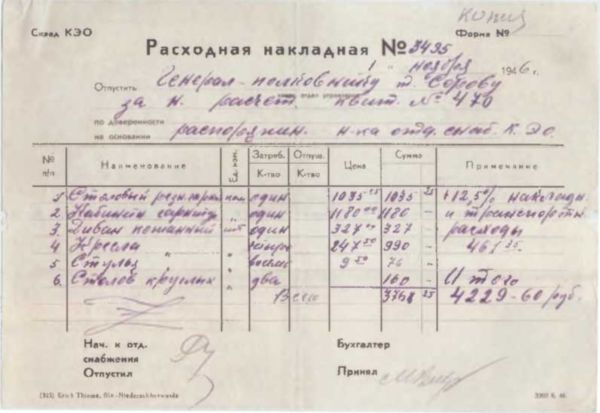 Копия
Склад КЭО
Форма №
Расходная накладная № 3495
" 1 " ноября 1946 г.
Отпустить Генерал-полковнику т. Серову
за н. расчет. квит. № 476
по доверенности
на основании распоряжен. н-ка отд. снаб. КЭО.
№ п/п Наименование Ед. изм. Затреб. К-тво Отпущ. К-тво Цена Сумма Примечание
1 Столовый гарнитур один 1035 25 1035 25 +12,5% накладн.
2 Кабинетн гарнитур " один 1180 00 1180 – и транспортн
3 Диван кожанный шт один 327 00 327 – расходы
4 Кресла " четыре 247 50 990 – 461 35.
5 Стулья " восемь 9 50 76 –
6. Столов круглых " два 160 – Итого
Всего 3768 25 4229-60 руб.
Нач. к отд.
снабжения
Отпустил
Бухгалтер
Принял
(343) Erich Thieme, Bln.-Niederschönhausen